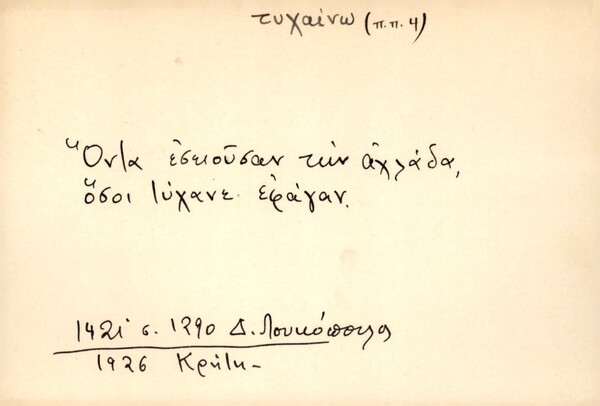 τυχαίνω (π.π. 4)
Ὅντα ἐσειοῦσαν τὴν ἀχλάδα,
ὅσοι τύχανε ἐφάγαν.
1421 σ. 1290 Δ. Λουκόπουλος
1926 Κρήτη-